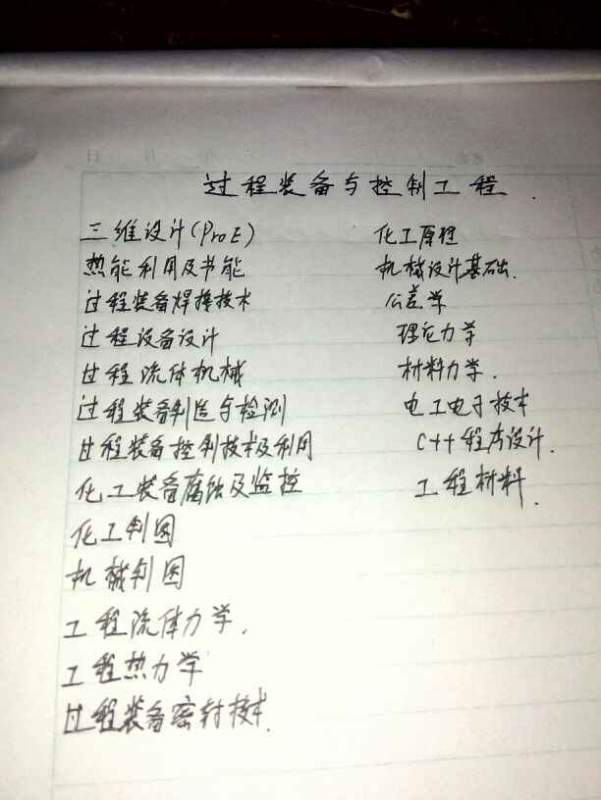 过程装备与控制工程.
三维设计(ProE)
热能利用及节能
过程装备焊接技术
过程设备设计
过程流体机械
过程装备制造与检测
过程装备控制技术及利用
化工装备腐蚀及监控
化工制图
机械制图
工程流体力学.
工程热力学
过程装备密封技术.
化工原理
机械设计基础.
公差学
理论力学
材料力学.
电工电子技术
C++程序设计.
工程材料.